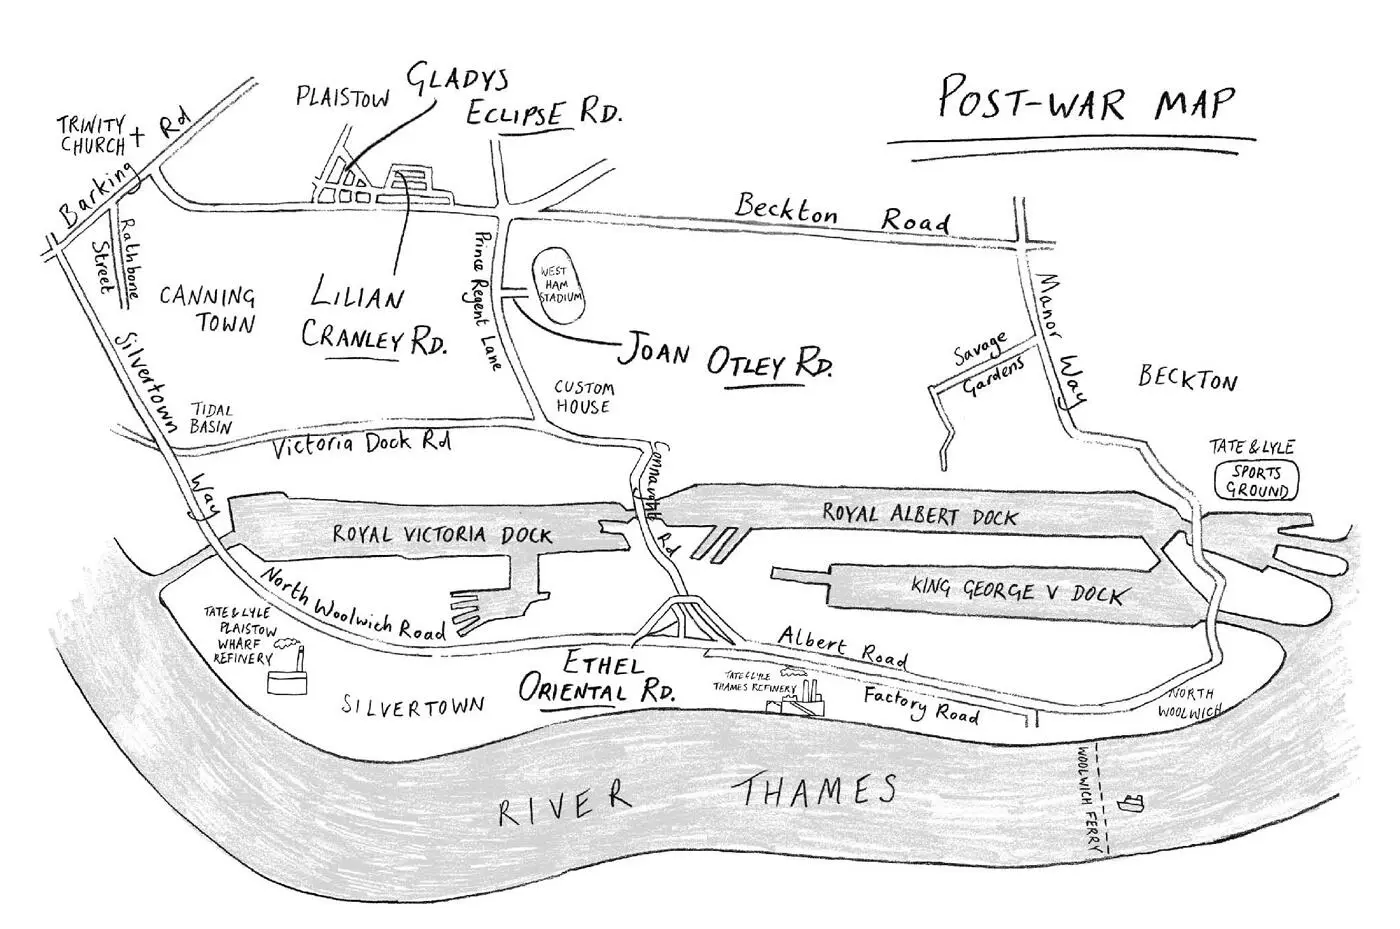 POST-WAR MAP
PLAISTOW
GLADYS
ECLIPSE RD.
TRINITY
CHURCH
Barking Rd
Rathbone
Street
CANNING
TOWN
LILIAN
CRANLEY RD.
Prince Regent Lane
WEST
HAM
STADIUM
Beckton Road
JOAN OTLEY RD.
Manor Way
Savage
Gardens
BECKTON
Silvertown Way
TIDAL
BASIN
Victoria Dock Rd
CUSTOM
HOUSE
Connaught Rd
TATE & LYLE
SPORTS
GROUND
ROYAL VICTORIA DOCK
ROYAL ALBERT DOCK
KING GEORGE V DOCK
North Woolwich Road
TATE & LYLE
PLAISTOW
WHARF
REFINERY
SILVERTOWN
ETHEL
ORIENTAL RD.
Albert Road
TATE & LYLE
THAMES REFINERY
Factory Road
NORTH
WOOLWICH
RIVER THAMES
WOOLWICH FERRY